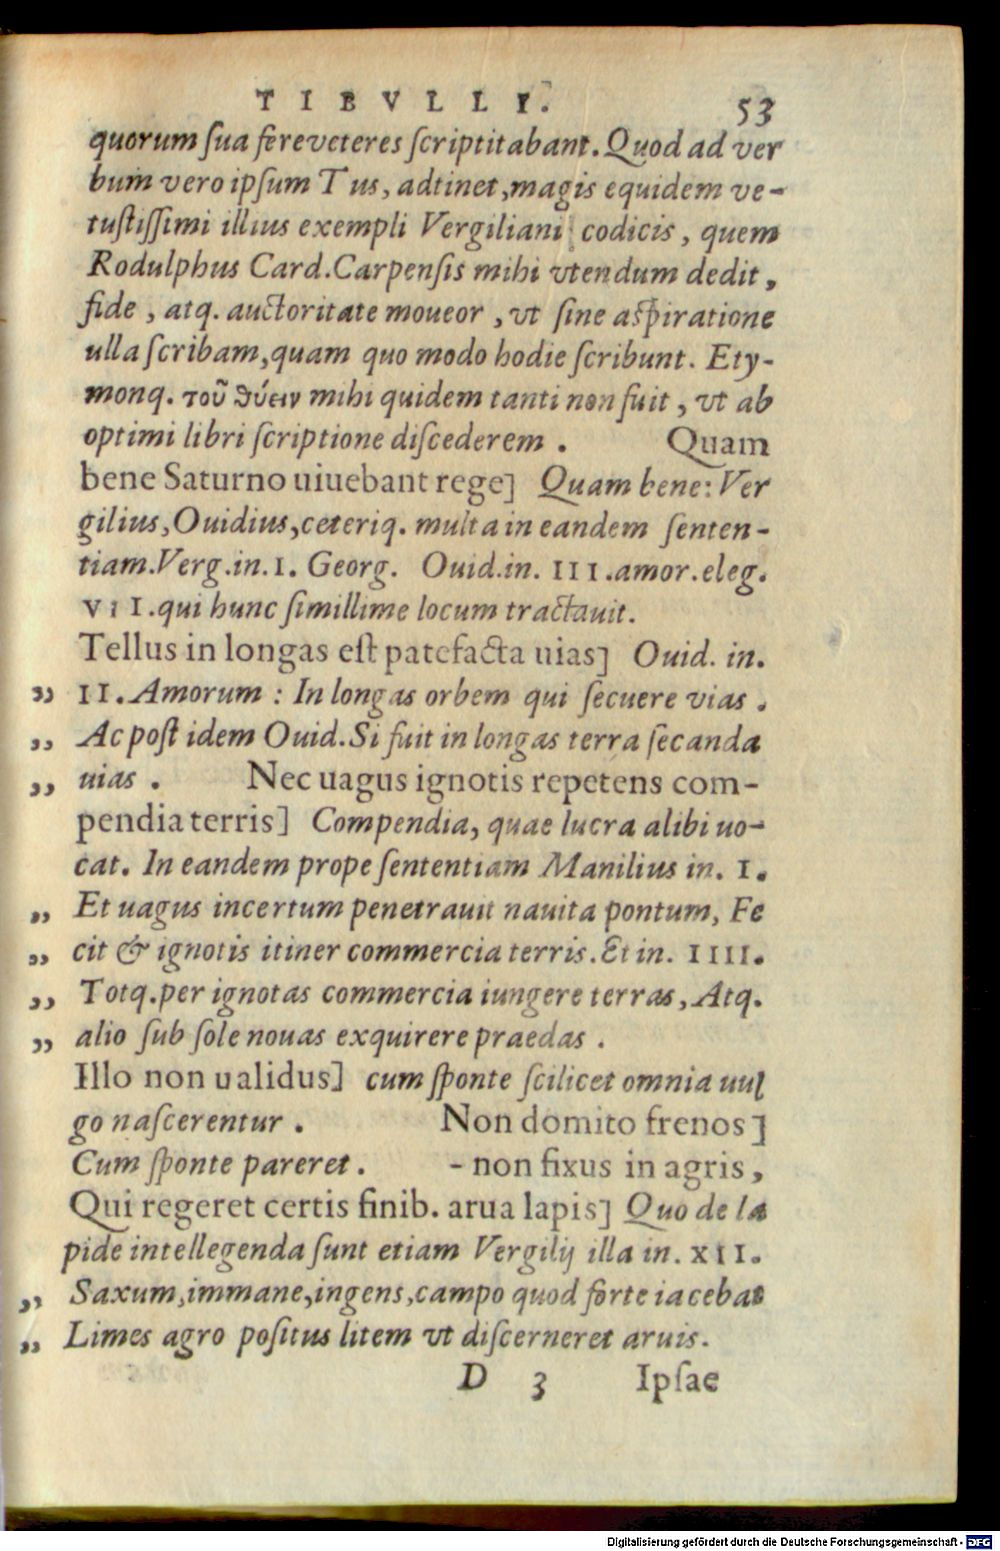 TIBVLLI. 53
quorum ſua fere veteres ſcriptitabant. Quod ad ver
bum vero ipſum Tus, adtinet, magis equidem ve-
tuſtiſſimi illius exempli Vergiliani codicis, quem
Rodulphus Card. Carpenſis mihi vtendum dedit,
fide, atq. auctoritate moueor, vt ſine aſpiratione
ulla ſcribam, quam quo modo hodie ſcribunt. Ety-
monq. τοῦ θύειν mihi quidem tanti non fuit, vt ab
optimi libri ſcriptione diſcederem. Quam
bene Saturno uiuebant rege] Quam bene: Ver
gilius, Ouidius, ceteriq. multa in eandem ſenten-
tiam. Verg. in. I. Georg. Ouid. in. III. amor. eleg.
VII. qui hunc ſimillime locum tractauit.
Tellus in longas eſt patefacta uias] Ouid. in.
„ II. Amorum: In longas orbem qui ſecuere vias.
„ Ac poſt idem Ouid. Si fuit in longas terra ſecanda
„ uias. Nec uagus ignotis repetens com-
pendia terris] Compendia, quae lucra alibi uo-
cat. In eandem prope ſententiam Manilius in. I.
„ Et uagus incertum penetrauit nauita pontum, Fe
„ cit & ignotis itiner commercia terris. Et in. IIII.
„ Totq. per ignotas commercia iungere terras, Atq.
„ alio ſub ſole nouas exquirere praedas.
Illo non ualidus] cum ſponte ſcilicet omnia uul
go naſcerentur. Non domito frenos]
Cum ſponte pareret. - non fixus in agris,
Qui regeret certis finib. arua lapis] Quo de la
pide intellegenda ſunt etiam Vergilij illa in. XII.
„ Saxum, immane, ingens, campo quod forte iacebat
„ Limes agro poſitus litem vt diſcerneret aruis.
D 3 Ipſae
Digitalisierung gefördert durch die Deutsche Forschungsgemeinschaft - DFG